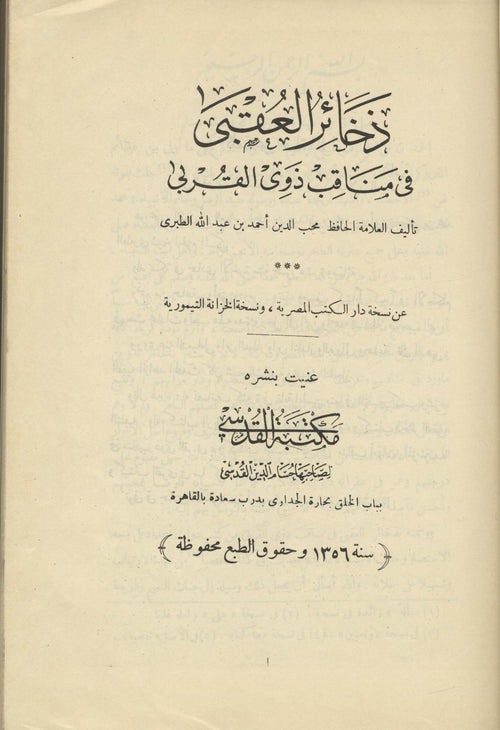 ذَخَائِرُ العُقْبَى
فى مَنَاقِبِ ذَوِى القُرْبى
تأليف العلامة الحافظ محب الدين أحمد بن عبد الله الطبرى
***
عن نسخة دار الكتب المصرية ، ونسخة الخزانة التيمورية
عنيت بنشره
مكتبة القدسي
لصاحبها حسام الدين القدسي
بباب الخلق بحارة الجداوى بدرب سعادة بالقاهرة
﴿ سنة ١٣٥٦ وحقوق الطبع محفوظة ﴾
١